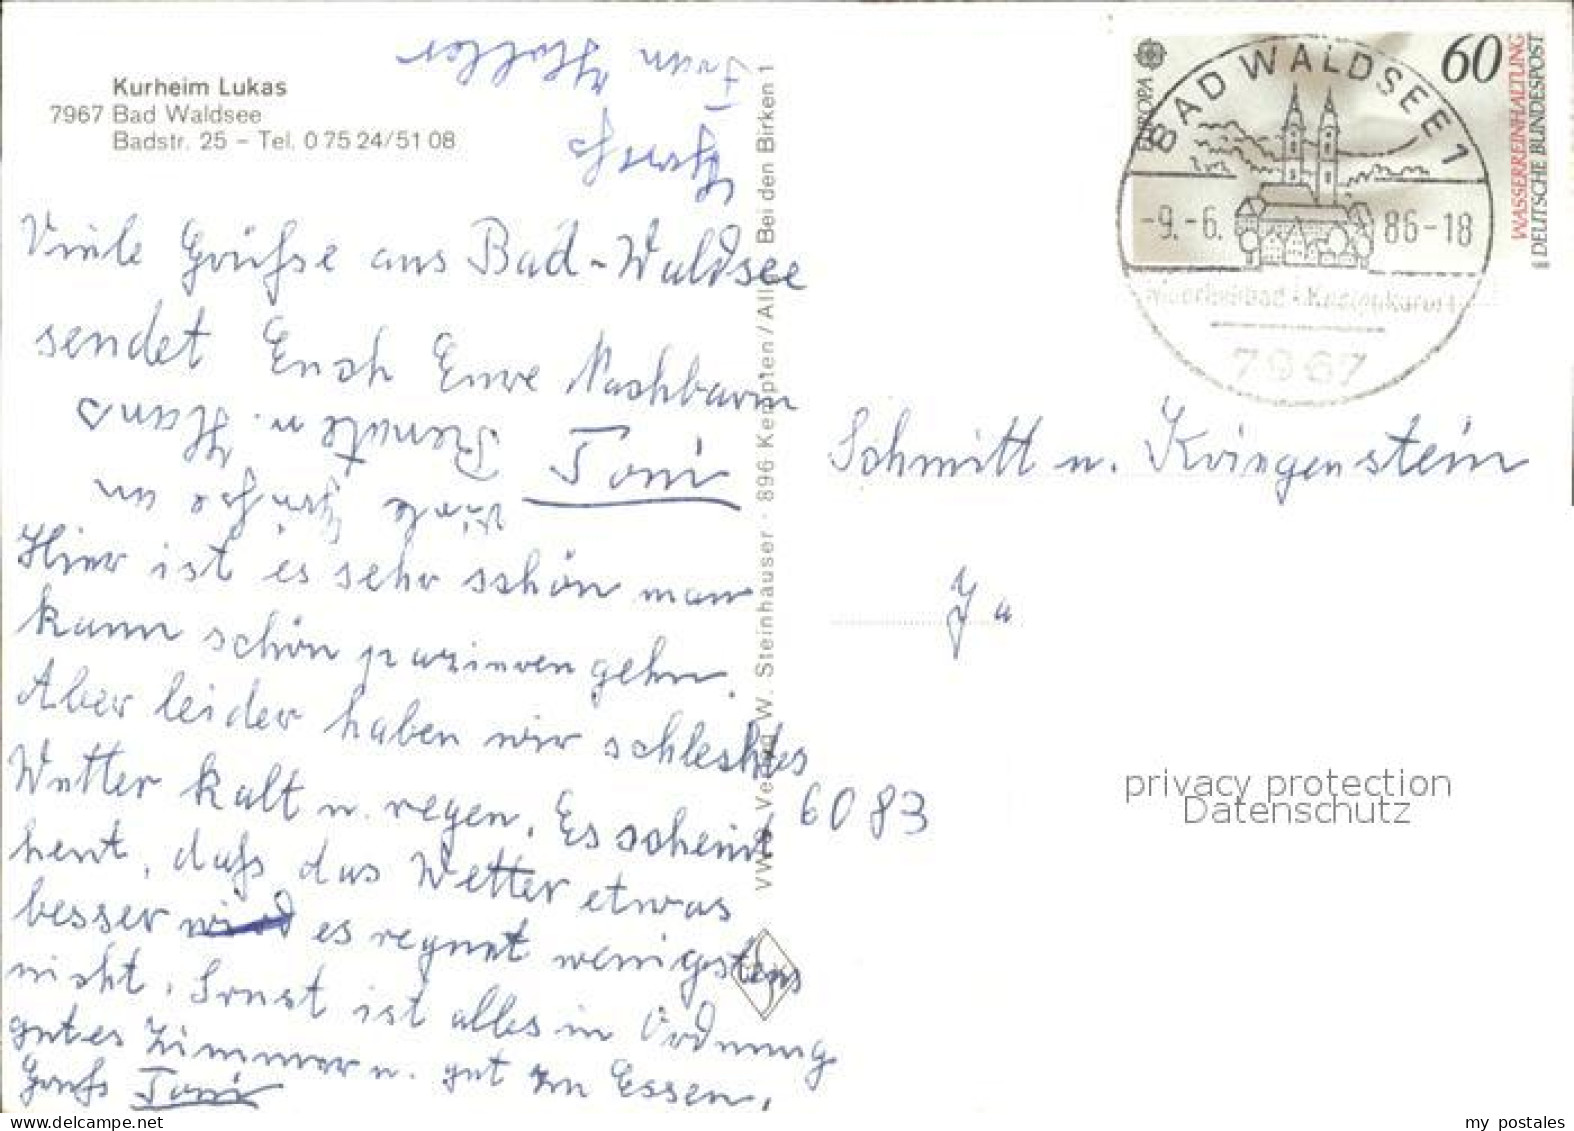 Kurheim Lukas
7967 Bad Waldsee
Badstr. 25 – Tel. 0 75 24/51 08
Gruß
Frau
Viele Grüße aus Bad-Waldsee
sendet Euch Eure Nachbarin
Toni
Viele Grüße an
Renate u. Hans
Hier ist es sehr schön man
kann schön gehn.
Aber leider haben wir schleshtes
Wetter kalt u. regen. Es scheint
heut, daß das Wetter etwas
besser wird es regnet wenigstens
nicht. Sonst ist alles in Ordnung
gutes Zimmer u. gut im Essen.
Gruß Toni
VWS Verlag W. Steinhauser · 896 Kempten / Allg. Bei den Birken 1
EUROPA
60
WASSERREINHALTUNG
DEUTSCHE BUNDESPOST
BAD WALDSEE 1
-9.-6.86-18
7967
Schmitt u.
6083
privacy protection
Datenschutz
my postales
www.delcampe.net